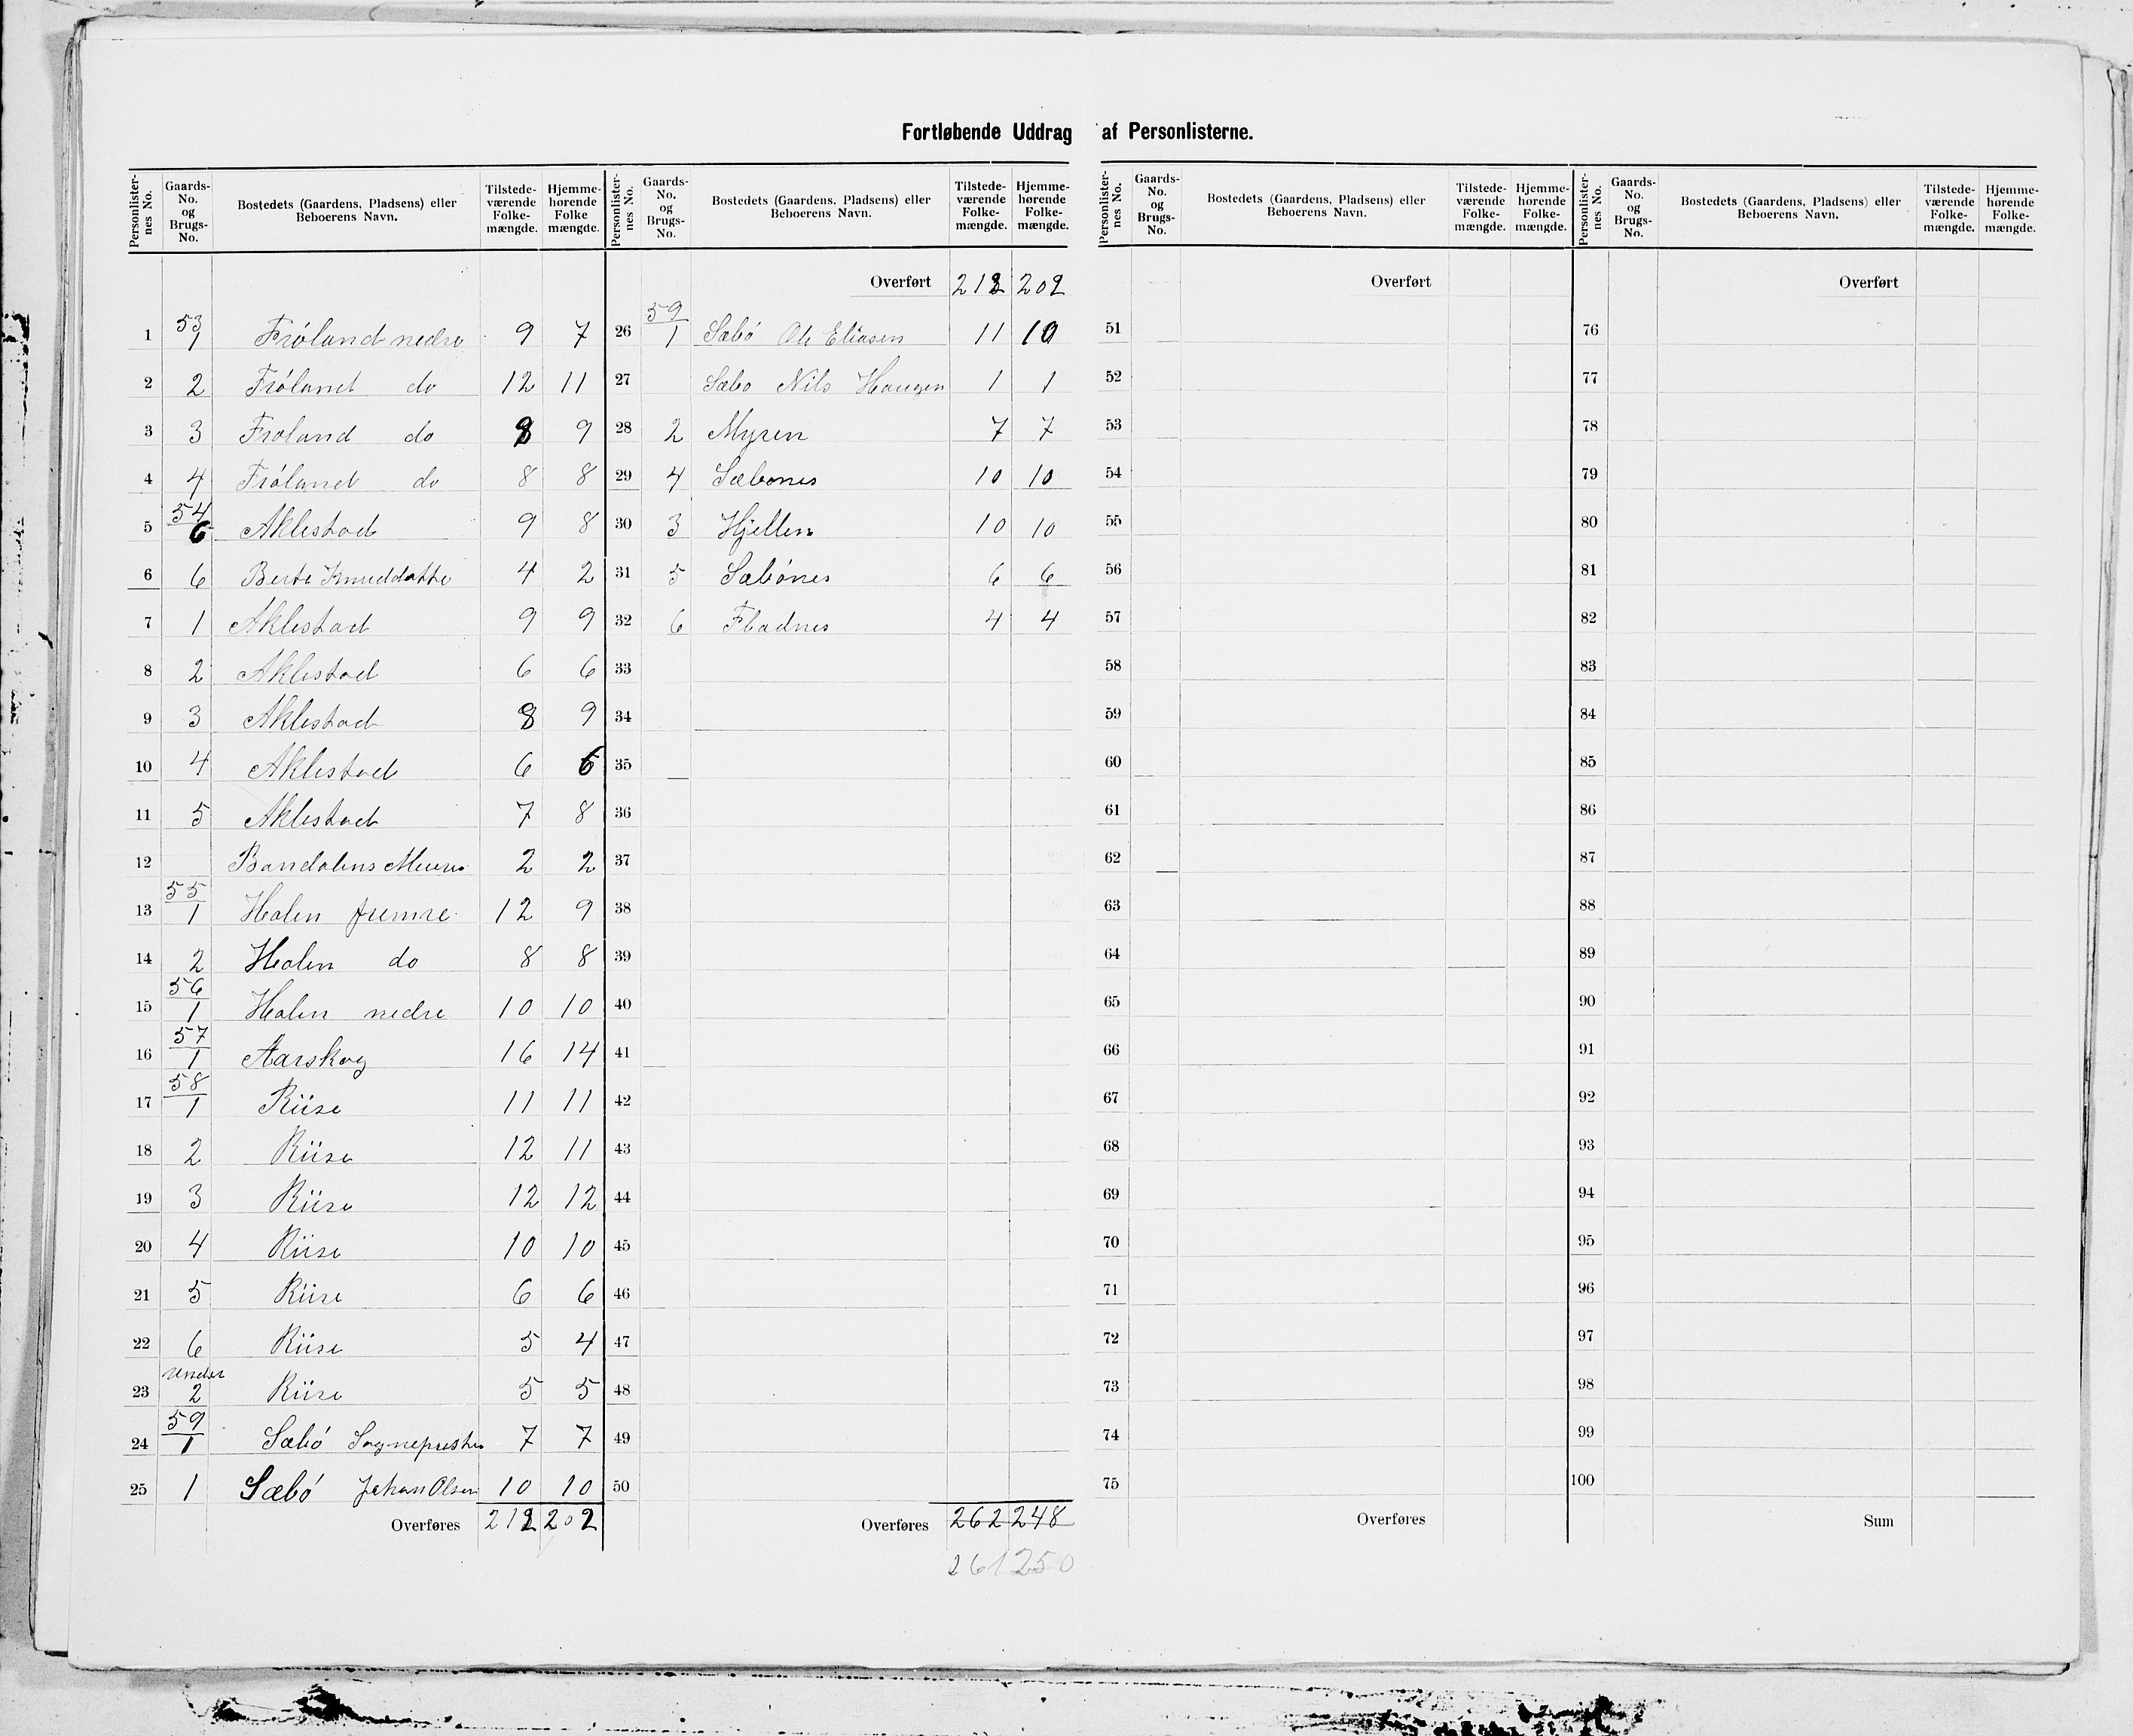 Fortløbende Uddrag af Personlisterne.
Personlister-nes No. | Gaards-No. og Brugs-No. | Bostedets (Gaardens, Pladsens) eller Beboerens Navn. | Tilstede-værende Folke-mængde. | Hjemme-hørende Folke mængde.
1 53/1 Frøland nedre 9 7
2 2 Frøland do 12 11
3 3 Froland do 8 9
4 4 Frøland do 8 8
5 54/6 Aklestad 9 8
6 6 Berte Knuddatte 4 2
7 1 Aklestad 9 9
8 2 Aklestad 6 6
9 3 Aklestad 8 9
10 4 Aklestad 6 6
11 5 Aklestad 7 8
12 2 2
13 55/1 Holen fremre 12 9
14 2 Holen do 8 8
15 56/1 Holen nedre 10 10
16 57/1 Aarskog 16 14
17 58/1 Riise 11 11
18 2 Riise 12 11
19 3 Riise 12 12
20 4 Riise 10 10
21 5 Riise 6 6
22 6 Riise 5 4
23 under 2 Riise 5 5
24 59/1 Sæbø Sognepresten 7 7
25 1 Sæbø Johan Olsen 10 10
Overføres 212 202
Personlister-nes No. | Gaards-No. og Brugs-No. | Bostedets (Gaardens, Pladsens) eller Beboerens Navn. | Tilstede-værende Folke-mængde. | Hjemme-hørende Folke-mængde.
Overført 212 202
26 59/1 Sæbø Ole Eliasen 11 10
27 Sæbo Nils Haugen 1 1
28 2 Myren 7 7
29 4 Sæbønes 10 10
30 3 Hjellen 10 10
31 5 Sæbønes 6 6
32 6 Fladnes 4 4
33
34
35
36
37
38
39
40
41
42
43
44
45
46
47
48
49
50
Overføres 262 248
261 250
Personlister-nes No. | Gaards-No. og Brugs-No. | Bostedets (Gaardens, Pladsens) eller Beboerens Navn. | Tilstede-værende Folke-mængde. | Hjemme-hørende Folke-mængde.
Overført
51
52
53
54
55
56
57
58
59
60
61
62
63
64
65
66
67
68
69
70
71
72
73
74
75
Overføres
Personlister-nes No. | Gaards-No. og Brugs-No. | Bostedets (Gaardens, Pladsens) eller Beboerens Navn. | Tilstede-værende Folke-mængde. | Hjemme-hørende Folke-mængde.
Overført
76
77
78
79
80
81
82
83
84
85
86
87
88
89
90
91
92
93
94
95
96
97
98
99
100
Sum